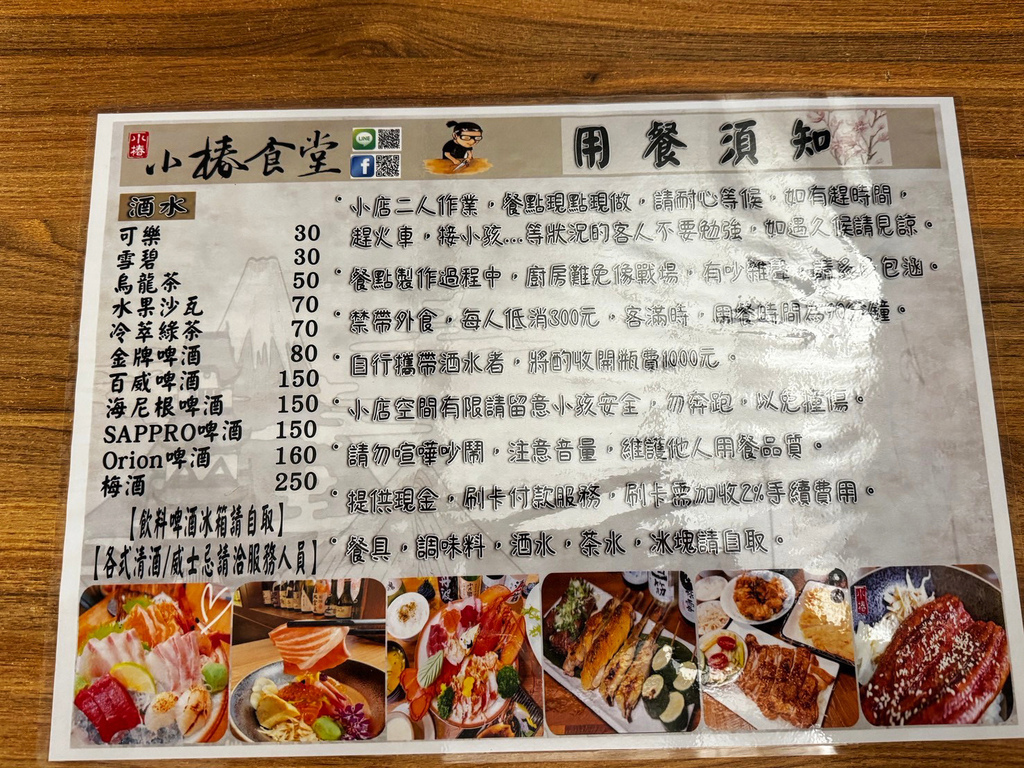 小椿
小椿食堂
LINE
f
用餐須知
酒水
可樂 30
雪碧 30
烏龍茶 50
水果沙瓦 70
冷萃綠茶 70
金牌啤酒 80
百威啤酒 150
海尼根啤酒 150
SAPPRO啤酒 150
Orion啤酒 160
梅酒 250
【飲料啤酒冰箱請自取】
【各式清酒/威士忌請洽服務人員】
小店二人作業，餐點現點現做，請耐心等候，如有趕時間，
趕火車，接小孩...等狀況的客人不要勉強，如遇久候請見諒。
餐點製作過程中，廚房難免像戰場，有吵雜聲，請多多包涵。
禁帶外食，每人低消300元，客滿時，用餐時間為90分鐘。
自行攜帶酒水者，將酌收開瓶費1000元。
小店空間有限請留意小孩安全，勿奔跑，以免撞傷。
請勿喧嘩吵鬧，注意音量，維護他人用餐品質。
提供現金，刷卡付款服務，刷卡需加收2%手續費用。
餐具，調味料，酒水，茶水，冰塊請自取。
小椿